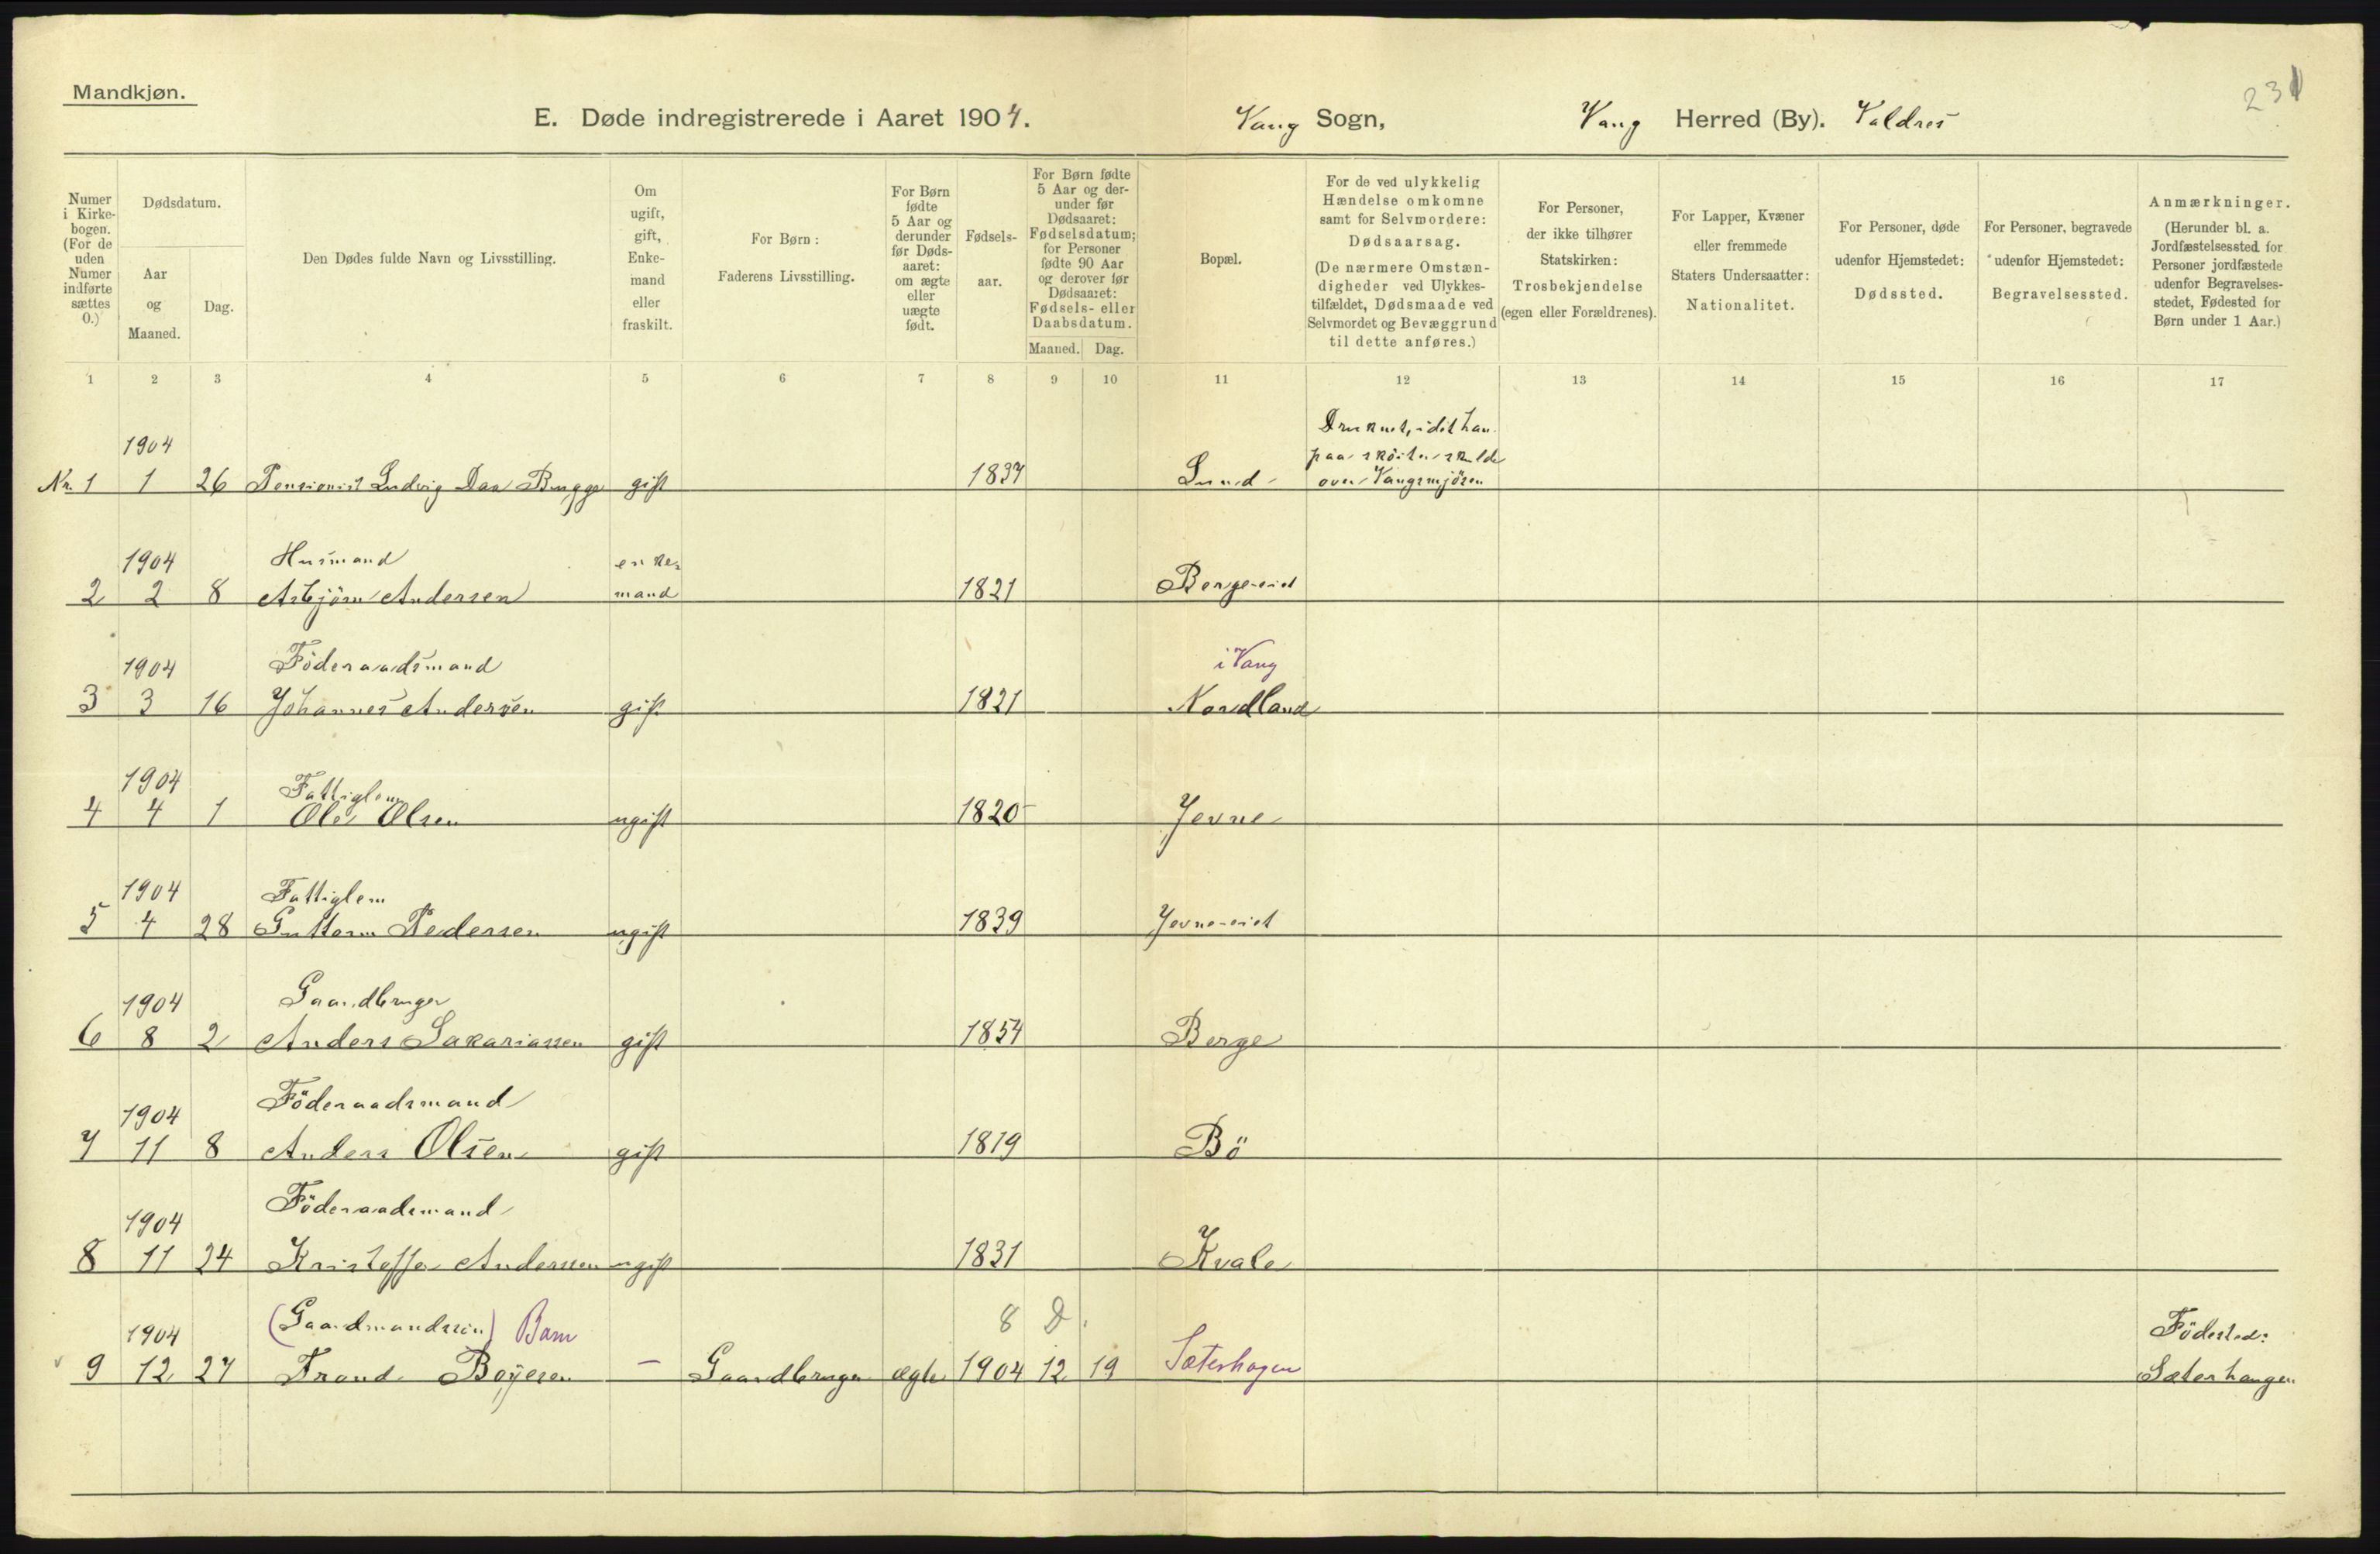 Mandkjøn.
231
E. Døde indregistrerede i Aaret 1904. Vang Sogn, Vang Herred (By). Valdres
Numer i Kirke-bogen. (For de uden Numer indførte sættes 0.)
Dødsdatum.
Aar og Maaned.
Dag.
Den Dødes fulde Navn og Livsstilling.
Om ugift, gift, Enke-mand eller fraskilt.
For Børn: Faderens Livsstilling.
For Børn fødte 5 Aar og derunder før Døds-aaret: om ægte eller uægte født.
Fødsels-aar.
For Børn fødte 5 Aar og der-under før Dødsaaret: Fødselsdatum; for Personer fødte 90 Aar og derover før Dødsaaret: Fødsels- eller Daabsdatum.
Maaned. Dag.
Bopæl.
For de ved ulykkelig Hændelse omkomne samt for Selvmordere: Dødsaarsag. (De nærmere Omstæn-digheder ved Ulykkes-tilfældet, Dødsmaade ved Selvmordet og Bevæggrund til dette anføres.)
For Personer, der ikke tilhører Statskirken: Trosbekjendelse (egen eller Forældrenes).
For Lapper, Kvæner eller fremmede Staters Undersaatter: Nationalitet.
For Personer, døde udenfor Hjemstedet: Dødssted.
For Personer, begravede udenfor Hjemstedet: Begravelsessted.
Anmærkninger. (Herunder bl. a. Jordfæstelsessted for Personer jordfæstede udenfor Begravelses-stedet, Fødested for Børn under 1 Aar.)
1 2 3 4 5 6 7 8 9 10 11 12 13 14 15 16 17
Druknet, idet han
1904 paa sköiter skulde
Nr. 1 1 26 Pensionist Ludvig Daa Bugge gift 1837 Lund over Vangsmjösen
1904 Husmand enke-
2 2 8 Asbjörn Andersen mand 1821 Berge-eiet
1904 Föderaadsmand i Vang
3 3 16 Johannes Andersen gift 1821 Nordland
1904 Fattiglem
4 4 1 Ole Olsen ugift 1820 Jevne
1904 Fattiglem
5 4 28 Guttorm Pedersen ugift 1839 Jevne-eiet
1904 Gaardbruger
6 8 2 Anders Sakariassen gift 1854 Berge
1904 Föderaadsmand
7 11 8 Anders Olsen gift 1819 Bö
1904 Föderaadsmand
8 11 24 Kristoffer Anderssen ugift 1831 Kvale
1904 (Gaardmandssön) Barn 8 D. Födested:
9 12 27 Trond Boyesen — Gaardbruger ægte 1904 12 19 Sæterhagen Sæterhaugen